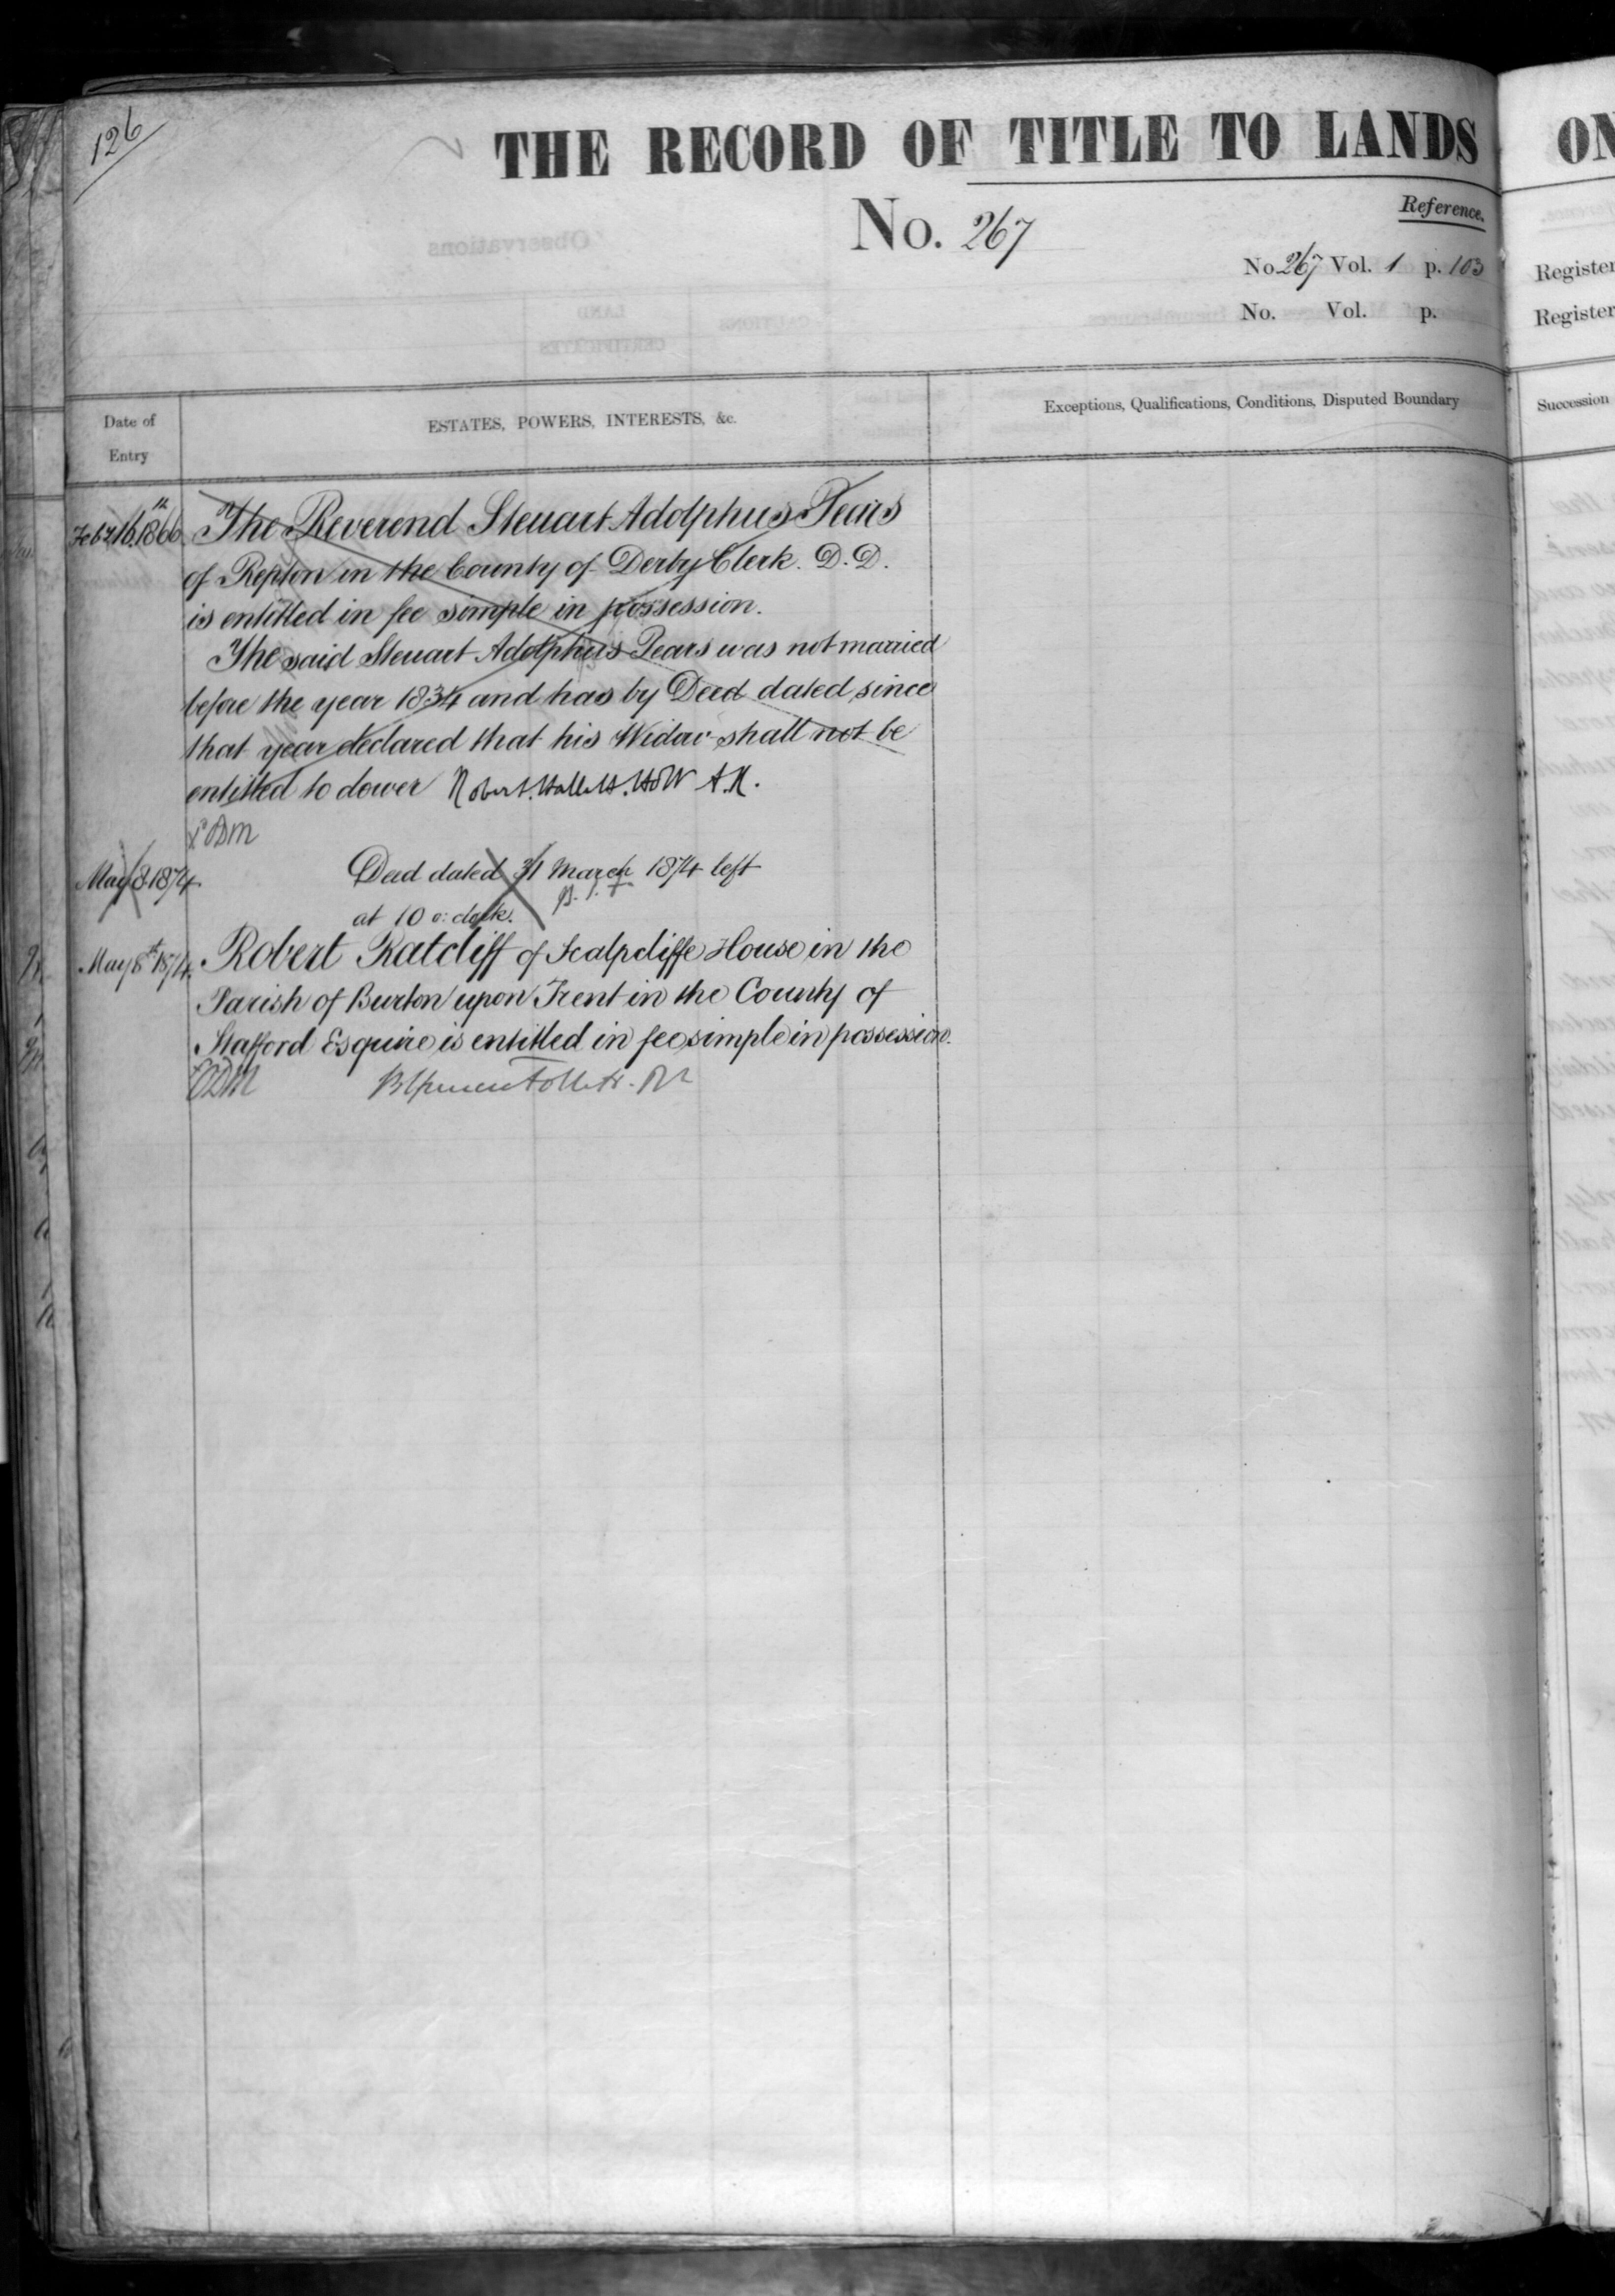 126
THE RECORD OF TITLE TO LANDS
No. 267
Reference.
No 267 Vol. 1 p. 103
No. Vol. p.
Date of Entry
ESTATES, POWERS, INTERESTS, &c.
Exceptions, Qualifications, Conditions, Disputed Boundary
Feby 16th 1866
The Reverend Steuart Adolphus Pears
of Repton in the County of Derby Clerk. D.D.
is entitled in fee simple in possession.
The said Steuart Adolphus Pears was not married
before the year 1834 and has by Deed dated since
that year declared that his Widow shall not be
entitled to dower
May 8 1874
Deed dated 31 March 1874 left
at 10 o:clock.
May 8th 1874
Robert Ratcliff of Scalpcliffe House in the
Parish of Burton upon Trent in the County of
Stafford Esquire is entitled in fee simple in possession.
ON
Register
Register
Succession